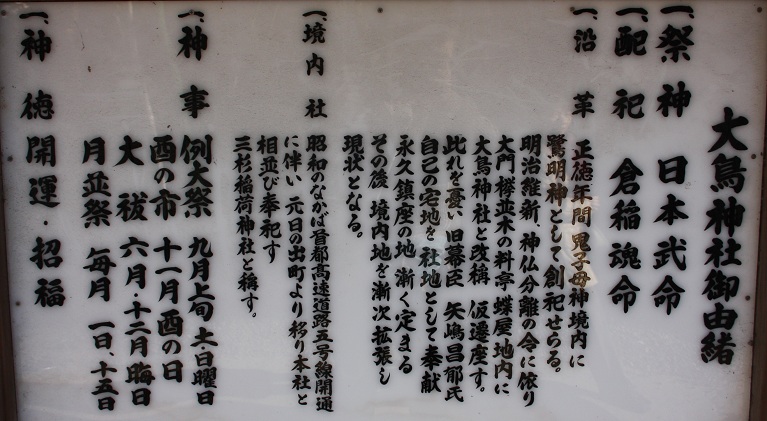 大鳥神社御由緒
一、祭神 日本武命
一、配祀 倉稲魂命
一、沿革 正徳年間 鬼子母神境内に
鷲明神として創祀せらる。
明治維新、神仏分離の令に依り
大門欅並木の料亭 蝶屋地内に
大鳥神社と改稱 仮遷座す。
此れを憂い 旧幕臣 矢嶋昌郁氏
自己の宅地を社地として奉献
永久鎮座の地 漸く定まる
その後 境内地を漸次拡張し
現状となる。
一、境内社 昭和のなかば首都高速道路五号線開通
に伴い 元日の出町より移り本社と
相並び奉祀す
三杉稲荷神社と稱す。
一、神事 例大祭 九月上旬 土日曜日
酉の市 十一月酉の日
大祓 六月・十二月晦日
月並祭 毎月 一日、十五日
一、神徳 開運・招福